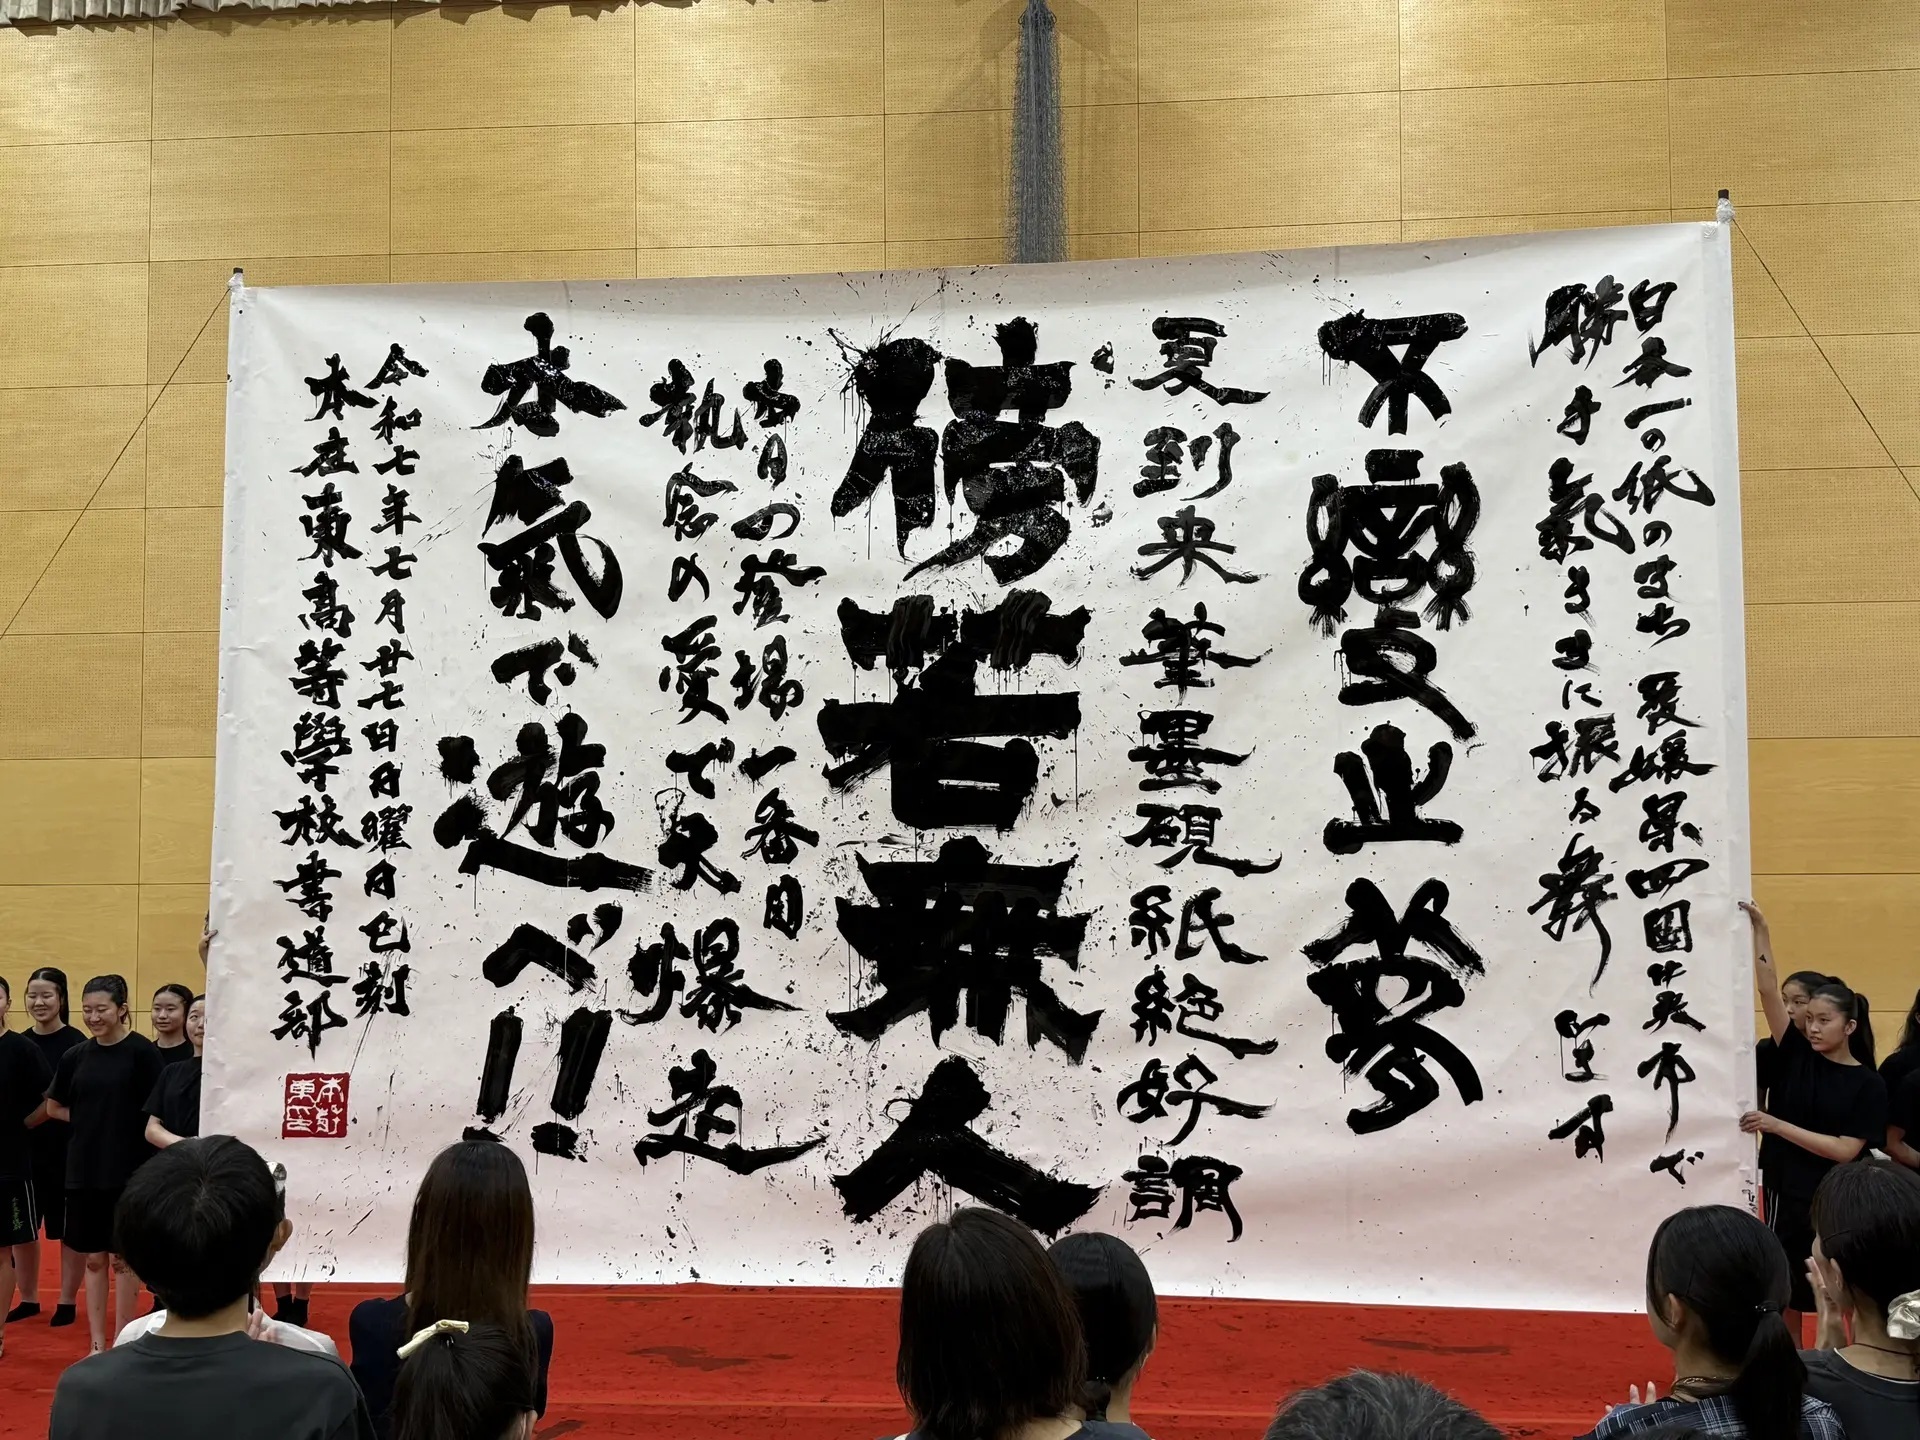 日本一の紙のまち愛媛県四國中央市で
勝手氣ままに振る舞います
不變止夢
夏到来筆墨硯紙絶好調
傍若無人
本日の登場一番目
執念の愛で大爆走
水氣で遊べ!!
令和七年七月廿七日日曜日巳刻
本庄東高等學校書道部
本庄東印